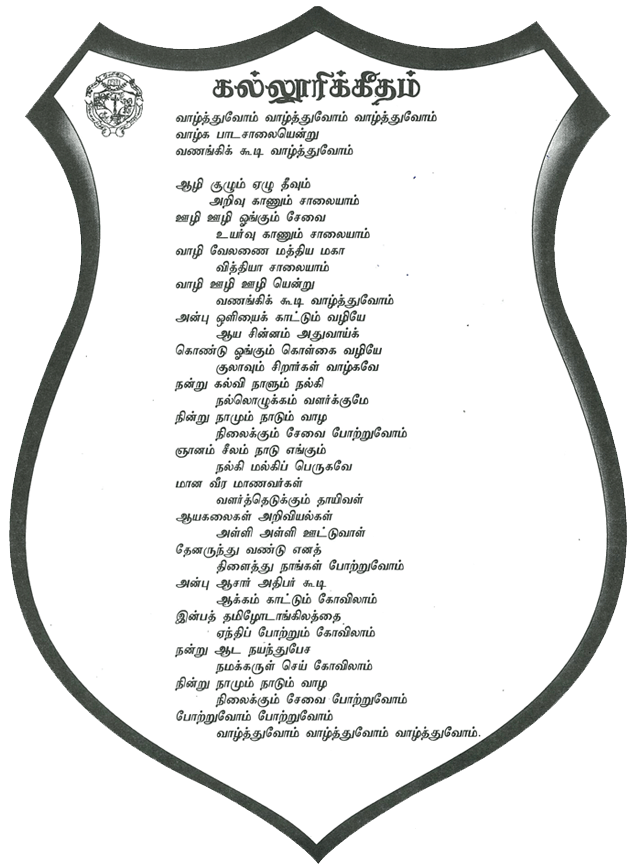 கல்லூரிக்கீதம்
வாழ்த்துவோம் வாழ்த்துவோம் வாழ்த்துவோம்
வாழ்க பாடசாலையென்று
வணங்கிக் கூடி வாழ்த்துவோம்
ஆழி சூழும் ஏழு தீவும்
அறிவு காணும் சாலையாம்
ஊழி ஊழி ஓங்கும் சேவை
உயர்வு காணும் சாலையாம்
வாழி வேலணை மத்திய மகா
வித்தியா சாலையாம்
வாழி ஊழி ஊழி யென்று
வணங்கிக் கூடி வாழ்த்துவோம்
அன்பு ஒளியைக் காட்டும் வழியே
ஆய சின்னம் அதுவாய்க்
கொண்டு ஓங்கும் கொள்கை வழியே
குலாவும் சிறார்கள் வாழ்கவே
நன்று கல்வி நாளும் நல்கி
நல்லொழுக்கம் வளர்க்குமே
நின்று நாமும் நாடும் வாழ
நிலைக்கும் சேவை போற்றுவோம்
ஞானம் சீலம் நாடு எங்கும்
நல்கி மல்கிப் பெருகவே
மான வீர மாணவர்கள்
வளர்த்தெடுக்கும் தாயிவள்
ஆயகலைகள் அறிவியல்கள்
அள்ளி அள்ளி ஊட்டுவாள்
தேனருந்து வண்டு எனத்
திளைத்து நாங்கள் போற்றுவோம்
அன்பு ஆசார் அதிபர் கூடி
ஆக்கம் காட்டும் கோவிலாம்
இன்பத் தமிழோடாங்கிலத்தை
ஏந்திப் போற்றும் கோவிலாம்
நன்று ஆட நயந்துபேச
நமக்கருள் செய் கோவிலாம்
நின்று நாமும் நாடும் வாழ
நிலைக்கும் சேவை போற்றுவோம்
போற்றுவோம் போற்றுவோம்
வாழ்த்துவோம் வாழ்த்துவோம் வாழ்த்துவோம்.